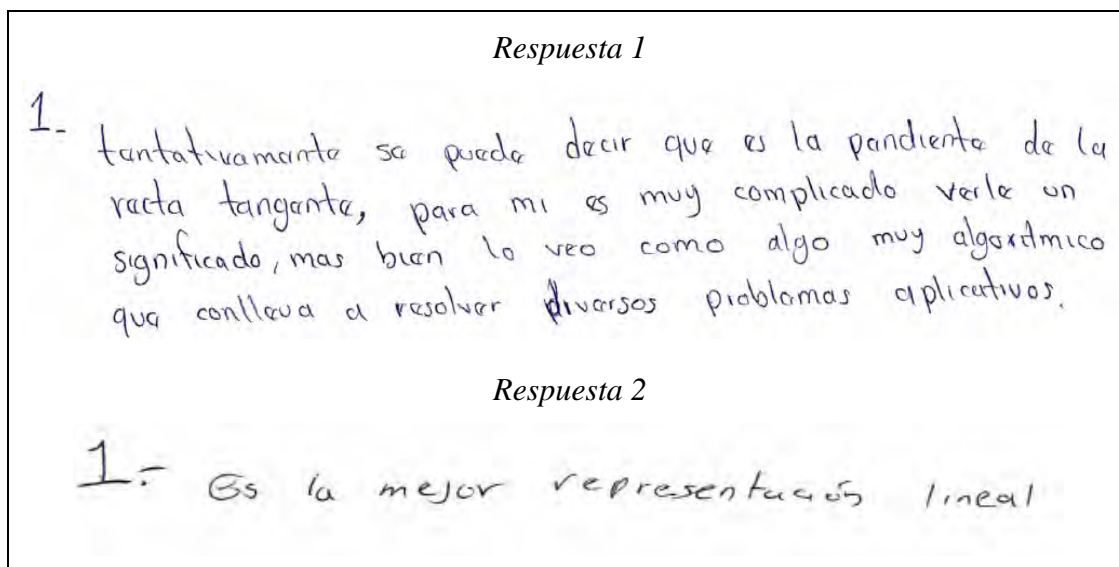 Respuesta 1
1- tentativamente se puede decir que es la pendiente de la
recta tangente, para mi es muy complicado verle un
significado, mas bien lo veo como algo muy algoritmico
que conlleva a resolver diversos problemas aplicativos.
Respuesta 2
1.- Es la mejor representación lineal